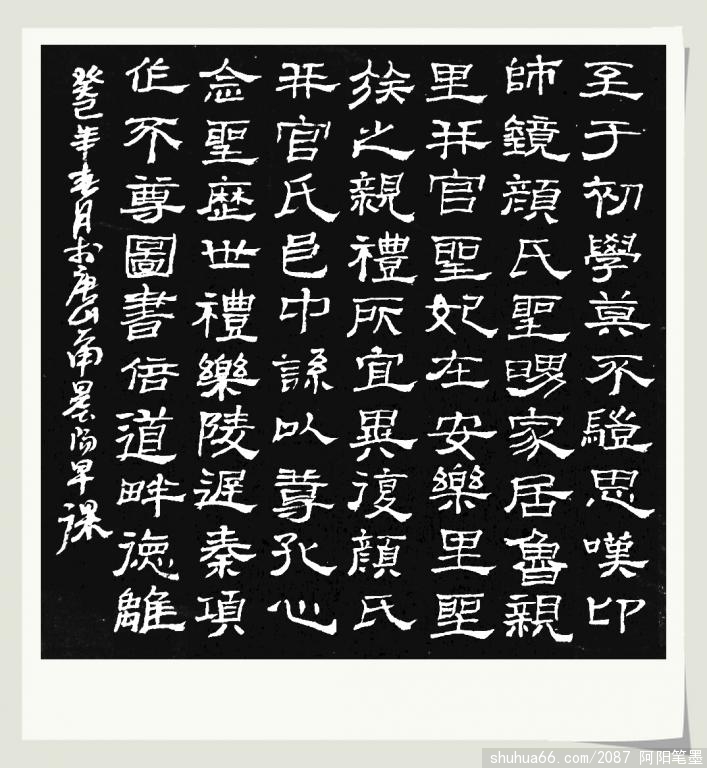 至于初學莫不思嘆卬
師鏡顏氏聖舅家居魯親
里并官聖妃在安樂里聖
族之親禮所宜異復顏氏
并官氏邑中繇以尊孔心
念聖歷世禮樂陵遲秦項
作不尊圖書倍道畔德離
癸巳年春月於唐山阳早課
shuhua66.com/2087 阿阳笔墨